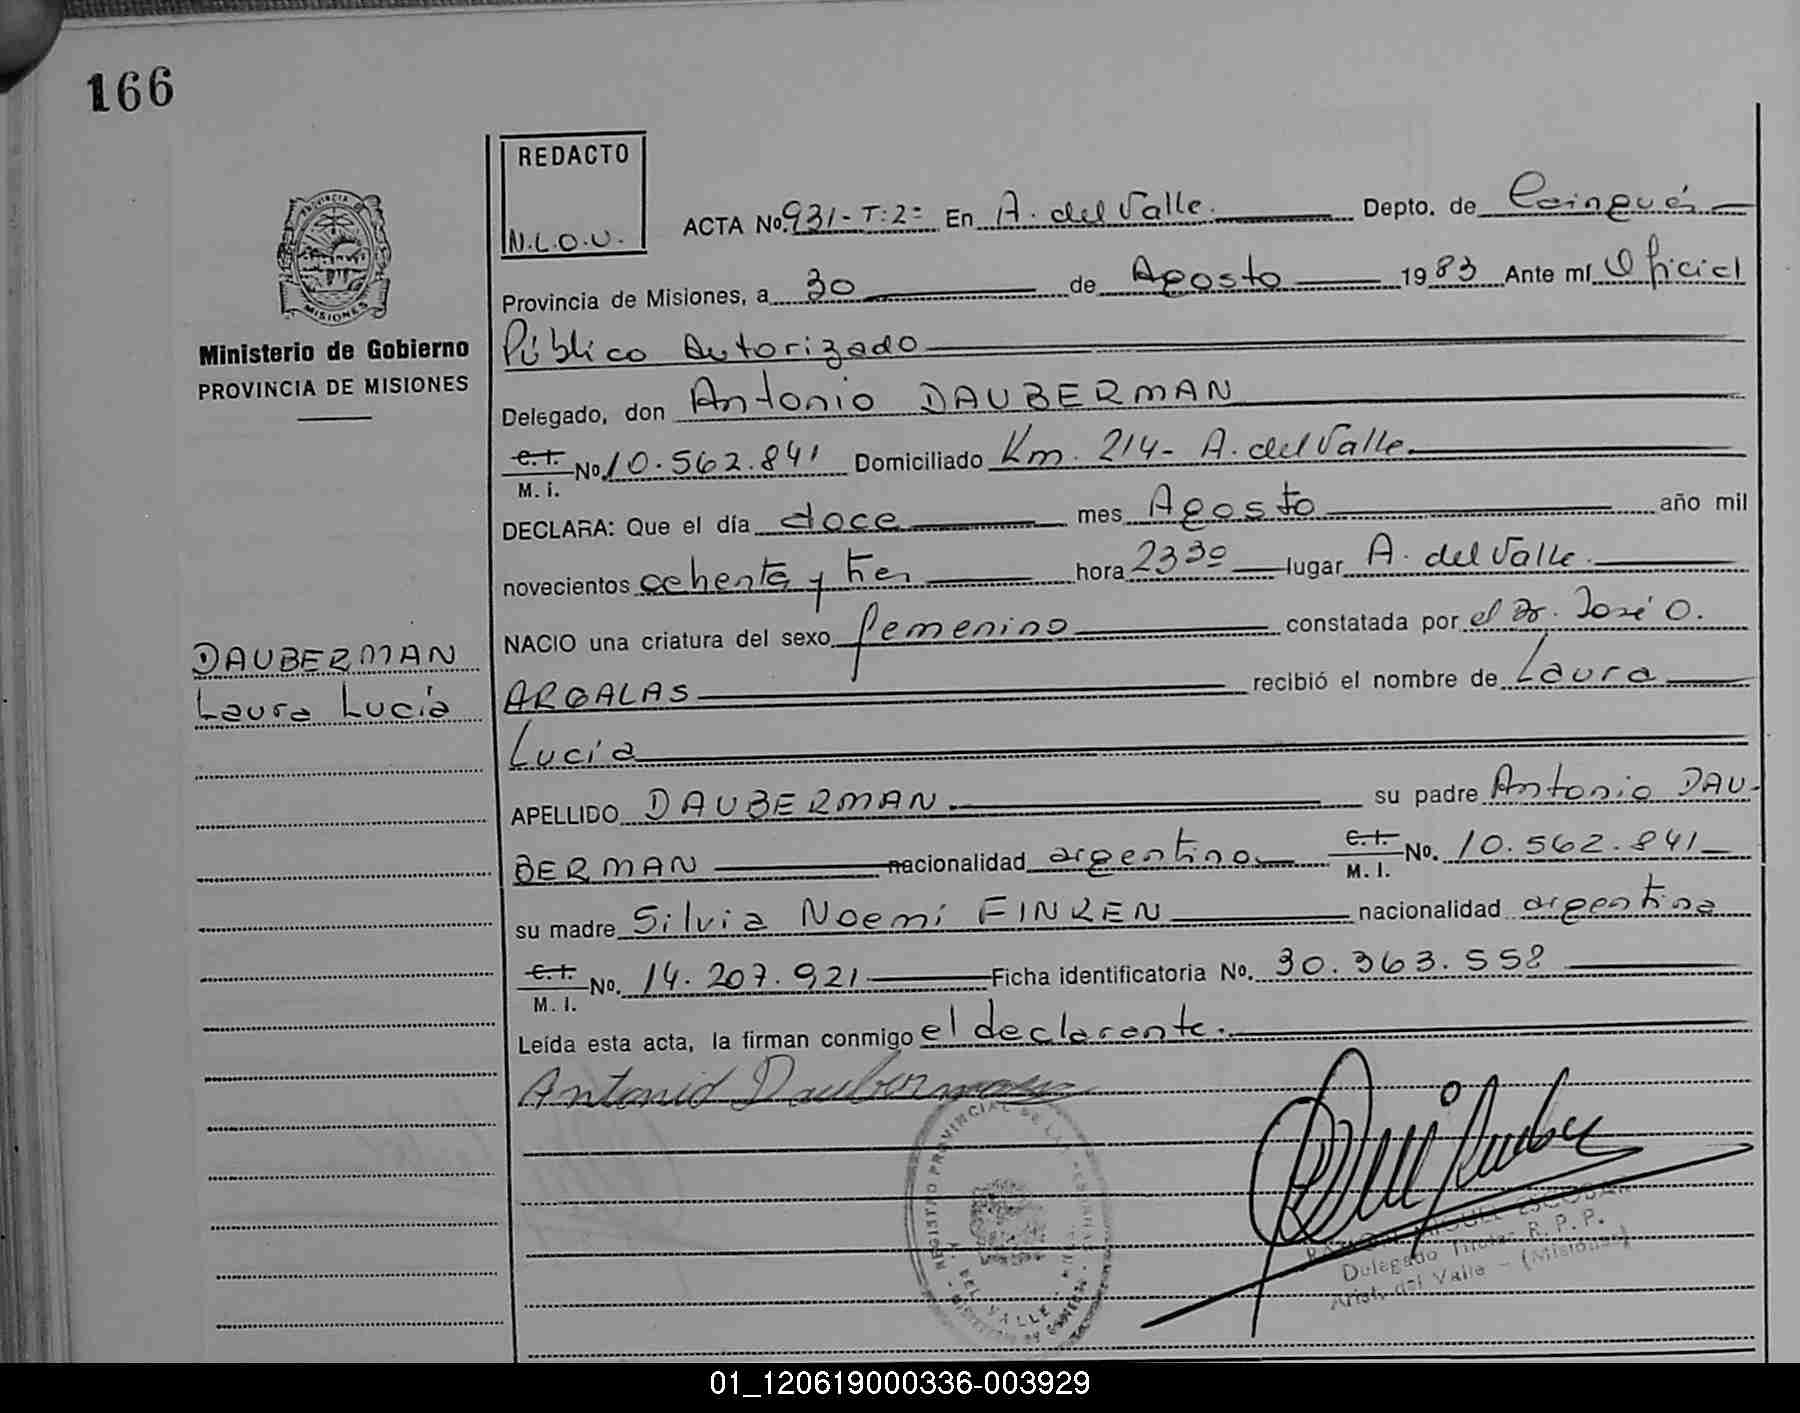 166
REDACTO
N.L.O.U.
ACTA No. 931-T:2º En A. del Valle. Depto. de Cainguás
Provincia de Misiones, a 30 de Agosto 1983 Ante mí Oficial
Público Autorizado
PROVINCIA
MISIONES
Ministerio de Gobierno
PROVINCIA DE MISIONES
Delegado, don Antonio DAUBERMAN
C.I. M. I. No. 10.562.841 Domiciliado Km. 214- A. del Valle.
DECLARA: Que el día doce mes Agosto año mil
novecientos ochenta y tres hora 23 30 lugar A. del Valle.
NACIO una criatura del sexo femenino constatada por el Dr. José O.
DAUBERMAN
Laura Lucía
ARGALAS recibió el nombre de Laura
Lucía
APELLIDO DAUBERMAN su padre Antonio DAU-
BERMAN nacionalidad argentino C.I. M. I. No. 10.562.841
su madre Silvia Noemí FINKEN nacionalidad argentina
C.I. M. I. No. 14.207.921 Ficha identificatoria No. 30.363.558
Leída esta acta, la firman conmigo el declarante.
Antonio Dauberman
REGISTRO PROVINCIAL DE LAS PERSONAS
DEL VALLE
MIGUEL ESCOBAR
Delegado Titular R. P. P.
Arist. del Valle - (Misiones)
01_120619000336-003929